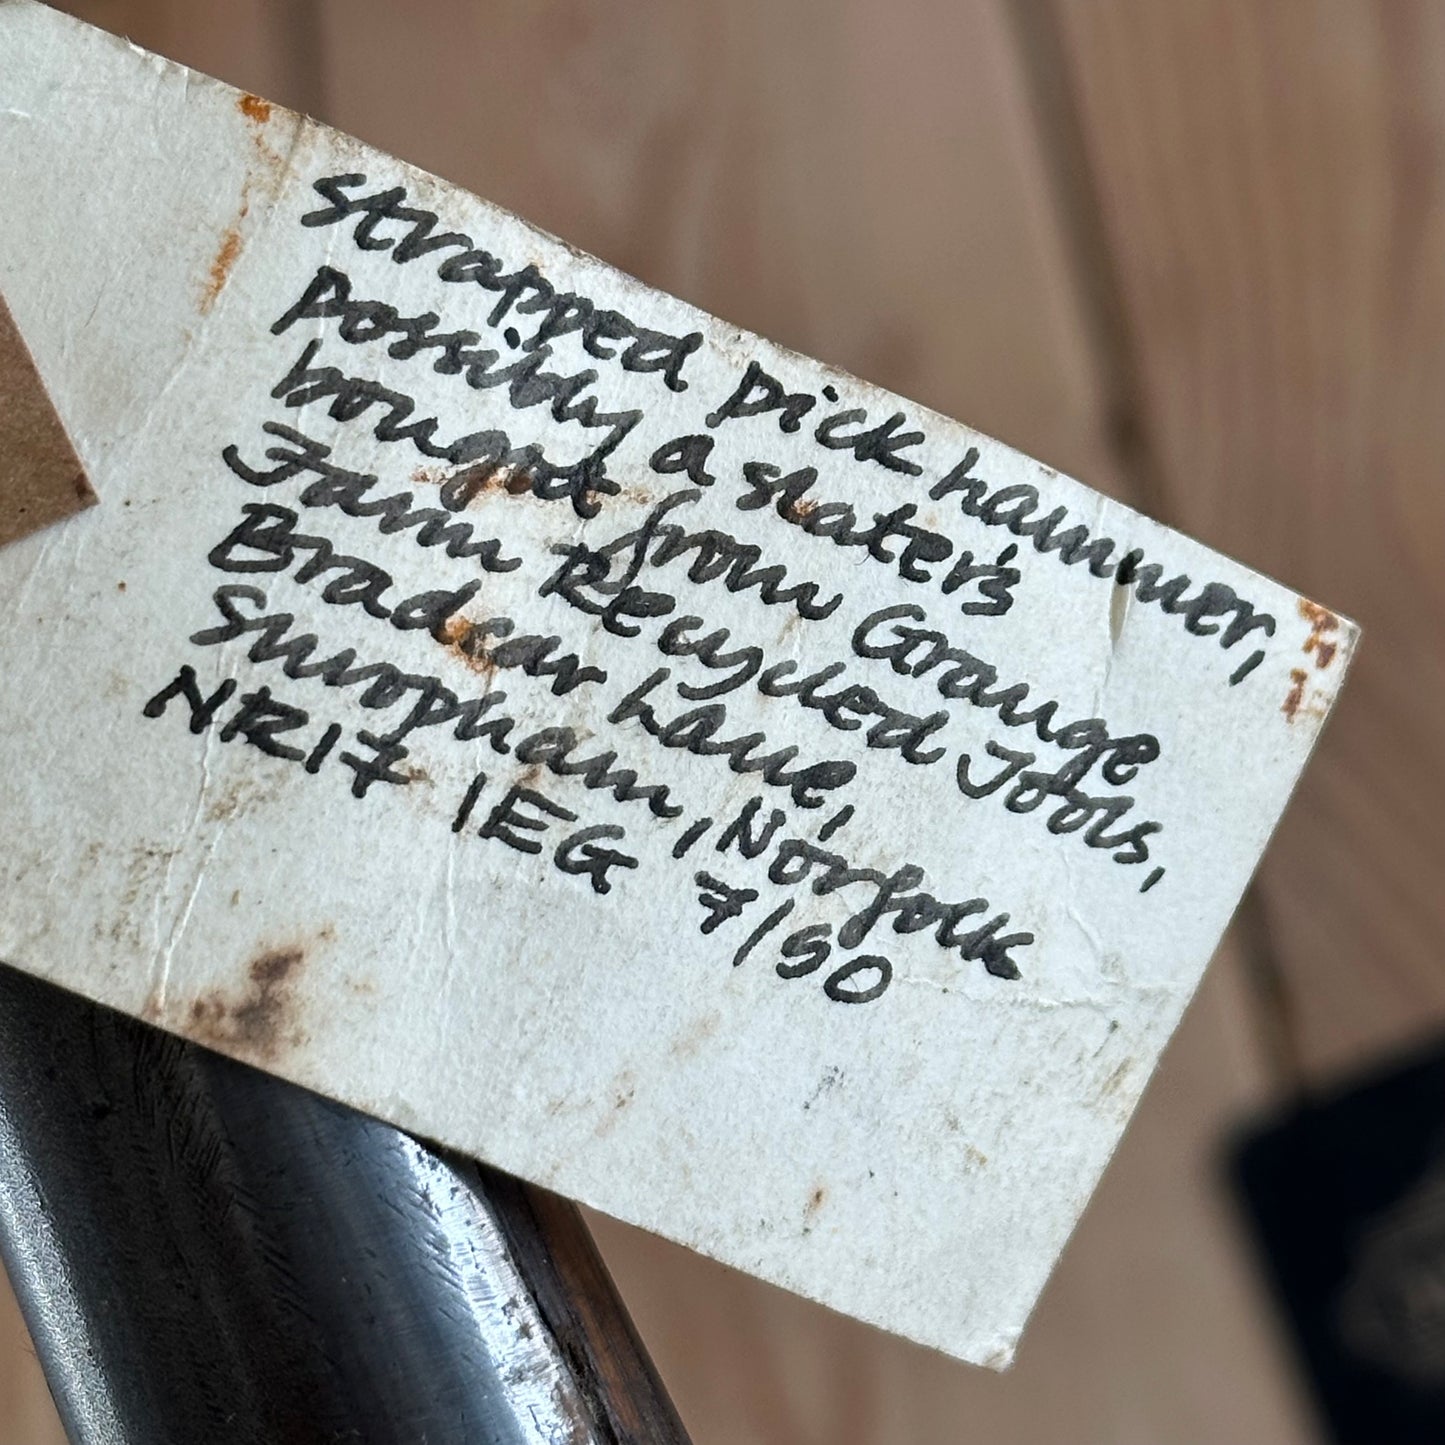 Strapped pick hammer,
possibly a slater's
bought from Grange
Farm Recycled Tools,
Bradcar Lane,
Shropham, Norfolk
NR17 1EG 7/50